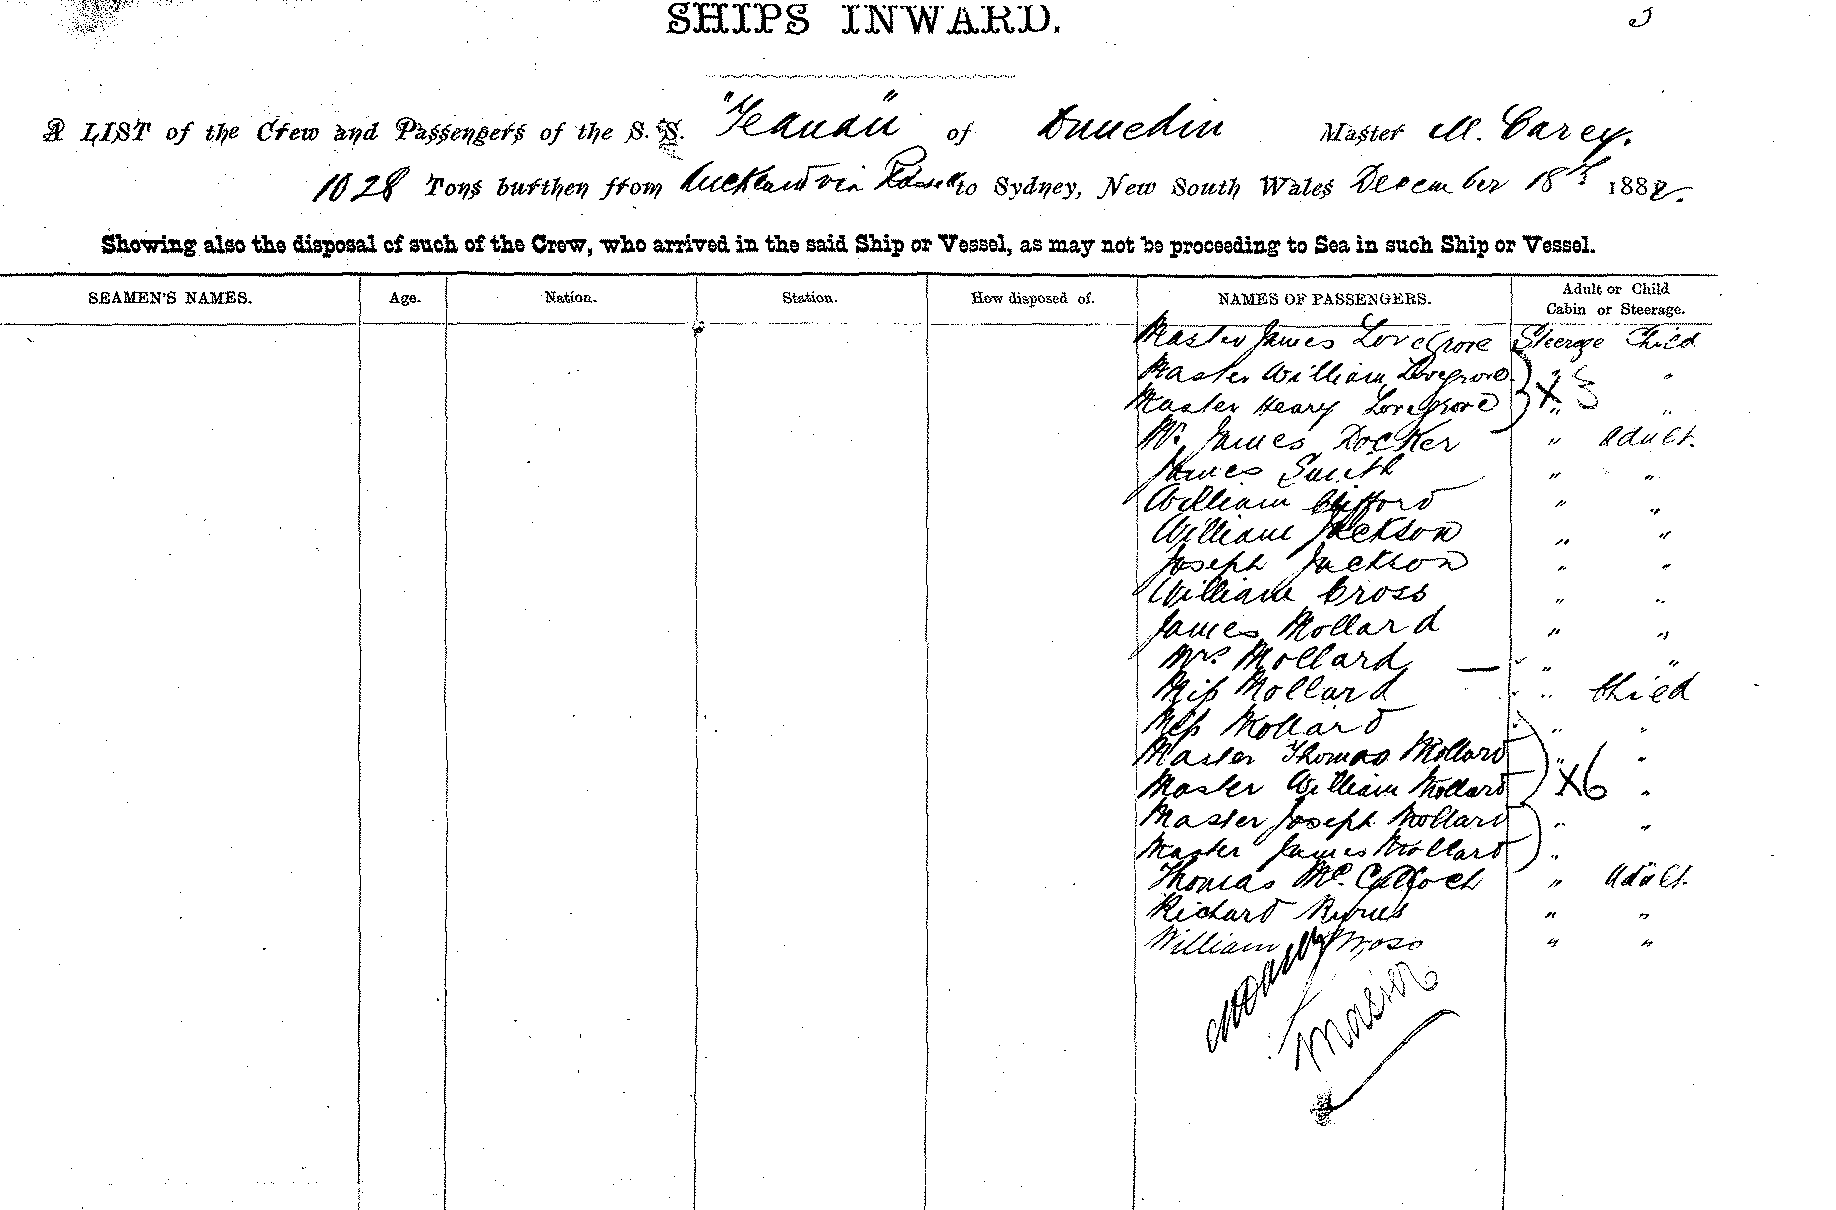 SHIPS INWARD. 5
A LIST of the Crew and Passengers of the S.S. "Teanau" of Dunedin Master M. Carey.
1028 Tons burthen from Auckland via Russell to Sydney, New South Wales December 18th 1882.
Showing also the disposal of such of the Crew, who arrived in the said Ship or Vessel, as may not be proceeding to Sea in such Ship or Vessel.
SEAMEN'S NAMES. Age. Nation. Station. How disposed of. NAMES OF PASSENGERS. Adult or Child Cabin or Steerage.
Master James Lovegrove Steerage Child
Master William Lovegrove " "
Master Henry Lovegrove X 3 " "
Mr. James Docker " adult.
James Smith " "
William Clifford " "
William Jackson " "
Joseph Jackson " "
William Cross " "
James Mollard " "
Mrs Mollard — " "
Miss Mollard " Child
Miss Mollard " "
Master Thomas Mollard " "
Master William Mollard X6 "
Master Joseph Mollard " "
Master James Mollard "
Thomas Mc. " adult.
Richard Byrnes " "
William Moss " "
Master